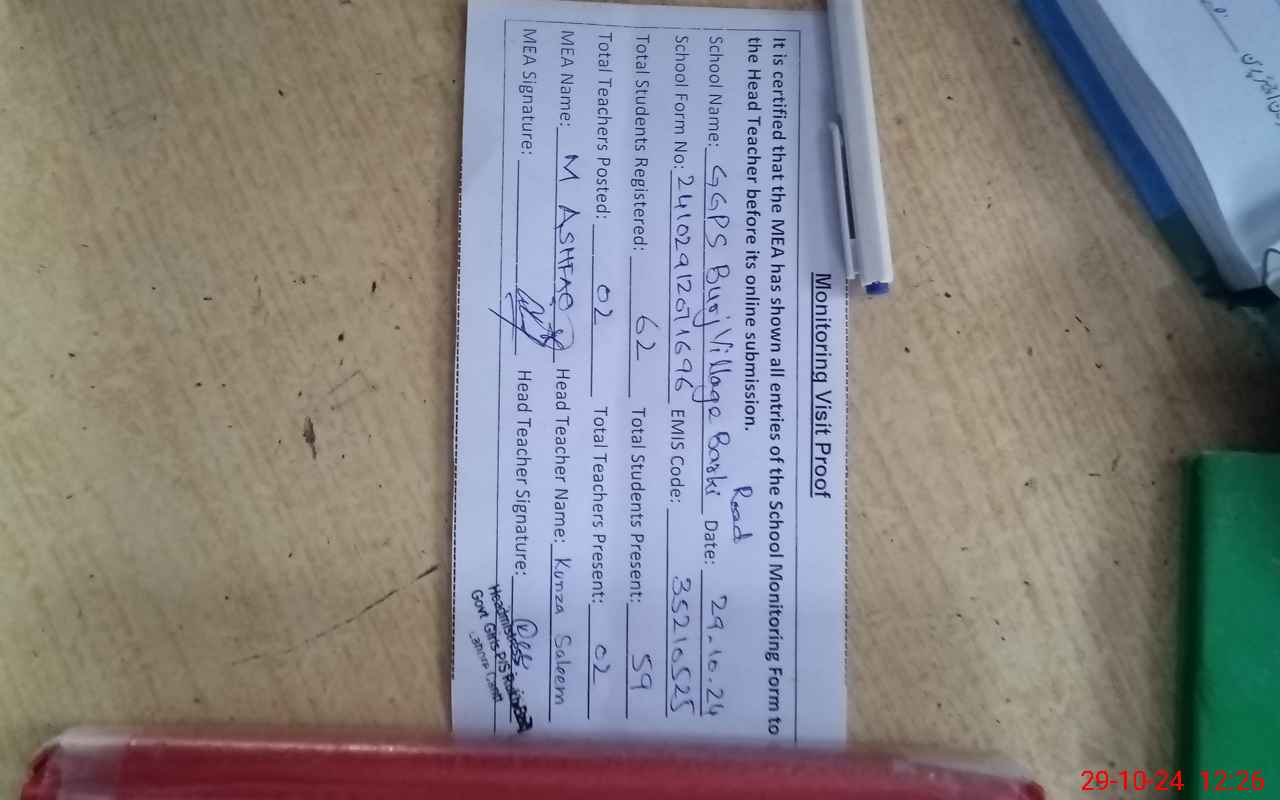 Monitoring Visit Proof
It is certified that the MEA has shown all entries of the School Monitoring Form to
the Head Teacher before its online submission.
School Name: GGPS Burj Village Barki Road Date: 29.10.24
School Form No: 24102912071696 EMIS Code: 35210525
Total Students Registered: 62 Total Students Present: 59
Total Teachers Posted: 02 Total Teachers Present: 02
MEA Name: M ASHFAQ Head Teacher Name: Kunza Saleem
MEA Signature: Head Teacher Signature:
Headmistress
Govt Girls P/S
Lahore Cantt
29-10-24 12:26